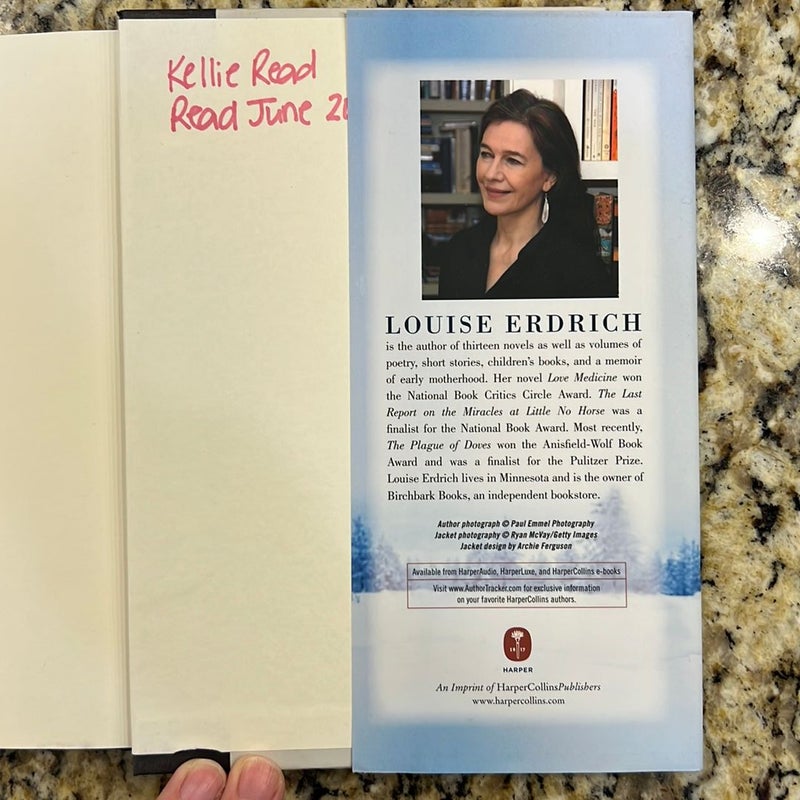 Kellie Read
Read June
LOUISE ERDRICH
is the author of thirteen novels as well as volumes of
poetry, short stories, children's books, and a memoir
of early motherhood. Her novel Love Medicine won
the National Book Critics Circle Award. The Last
Report on the Miracles at Little No Horse was a
finalist for the National Book Award. Most recently,
The Plague of Doves won the Anisfield-Wolf Book
Award and was a finalist for the Pulitzer Prize.
Louise Erdrich lives in Minnesota and is the owner of
Birchbark Books, an independent bookstore.
Author photograph © Paul Emmel Photography
Jacket photography © Ryan McVay/Getty Images
Jacket design by Archie Ferguson
Available from HarperAudio, HarperLuxe, and HarperCollins e-books
Visit www.AuthorTracker.com for exclusive information
on your favorite HarperCollins authors.
18 17
HARPER
An Imprint of HarperCollinsPublishers
www.harpercollins.com